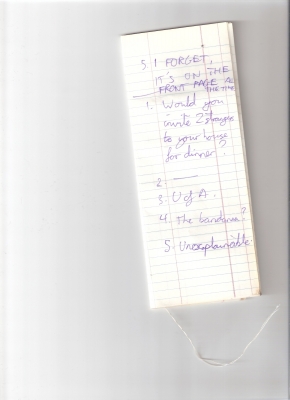 5. I FORGET,
IT'S ON THE
FRONT PAGE AL
THE TIME
1. Would you
invite 2
to your house
for dinner?
2. ——
3. U of A.
4. The bandana?
5. Unexplainable.